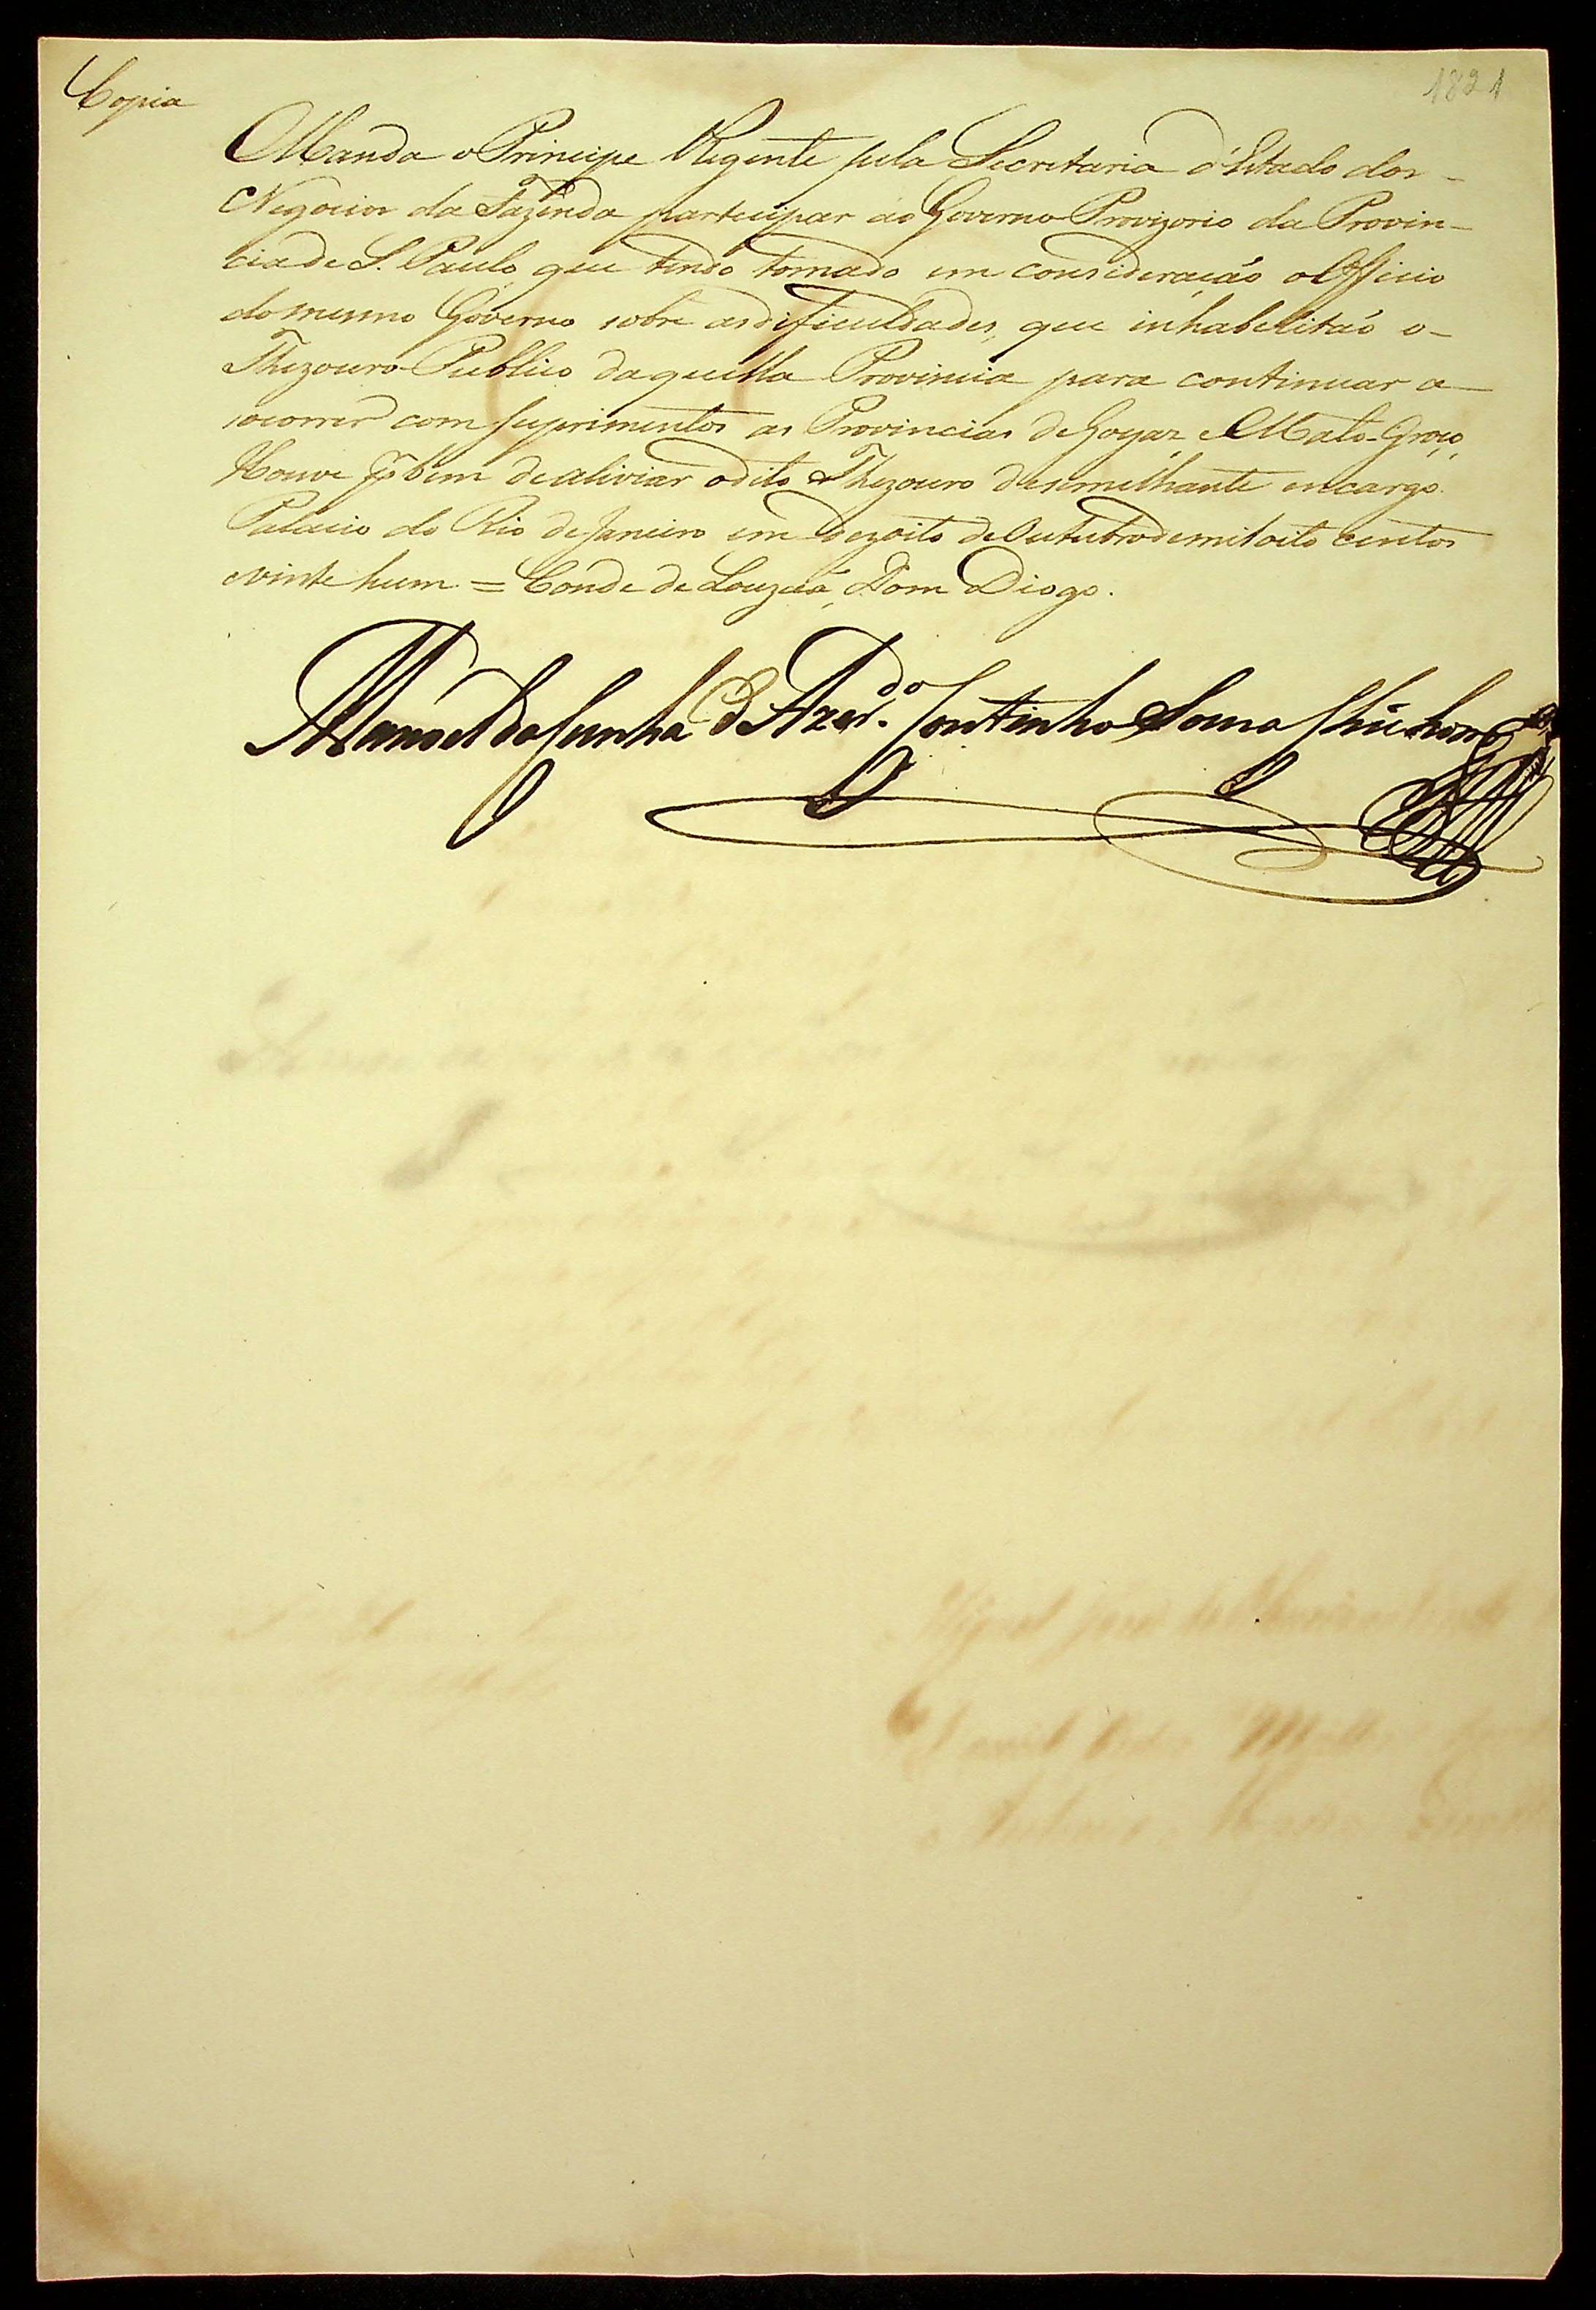 Copia
1821
Manda o Principe Regente pela Secretaria d'Estado dos
Negocios da Fazenda participar ao Governo Provizorio da Provin-
cia de S. Paulo, que tendo tomado em consideração o Officio
do mesmo Governo sobre as dificuldades, que inhabelitaõ o
Thezouro Publico daquella Provincia para continuar a
socorrer com suprimentos as Provincias de Goyaz, e Mato-Groço,
Houve por bem de aliviar o dito Thezouro de semelhante encargo.
Palacio do Rio de Janeiro em dezoito de Outubro de mil oito centos
e vinte hum = Conde de Louzaã, Dom Diogo.
Manoel da Cunha d'Azer.do Coutinho Souza Chichorro